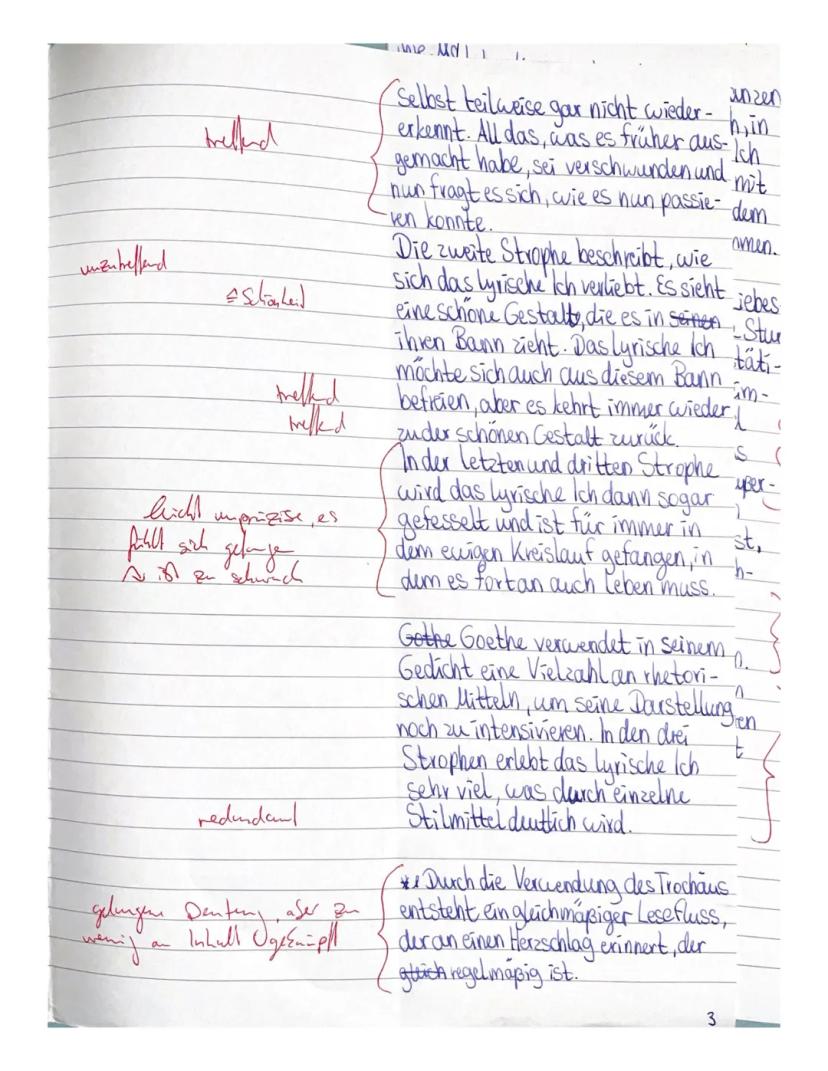 selbst teilweise gar nicht wieder-
erkennt. All das, was es früher aus-
gemacht habe, sei verschwunden und
nun fragt es sich, wie es nun passie-
ren konnte.
treffend
Die zweite Strophe beschreibt, wie
sich das lyrische Ich verliebt. Es sieht
eine schöne Gestalt, die es in seinen
ihren Bann zieht. Das lyrische Ich
möchte sich auch aus diesem Bann
befreien, aber es kehrt immer wieder
zu der schönen Gestalt zurück.
unzutreffend
treffend
treffend
In der letzten und dritten Strophe
wird das lyrische Ich dann sogar
gefesselt und ist für immer in
dem ewigen Kreislauf gefangen, in
dem es fortan auch leben muss.
leicht unpräzise, es
fühlt sich gefangen
ist zu schwach
Gothe Goethe verwendet in seinem
Gedicht eine Vielzahl an rhetori-
schen Mitteln, um seine Darstellung
noch zu intensivieren. In den drei
Strophen erlebt das lyrische Ich
sehr viel, was durch einzelne
Stilmittel deutlich wird.
redundant
Durch die Verwendung des Trochäus
entsteht ein gleichmäßiger Lesefluss,
der an einen Herzschlag erinnert, der
gleich regelmäßig ist.
gelungene Deutung, aber zu
wenig an Inhalt
3
unzen
h, in
Ich
mit
dem
omen.
iebes
Stur
täti-
im-
st,
h-